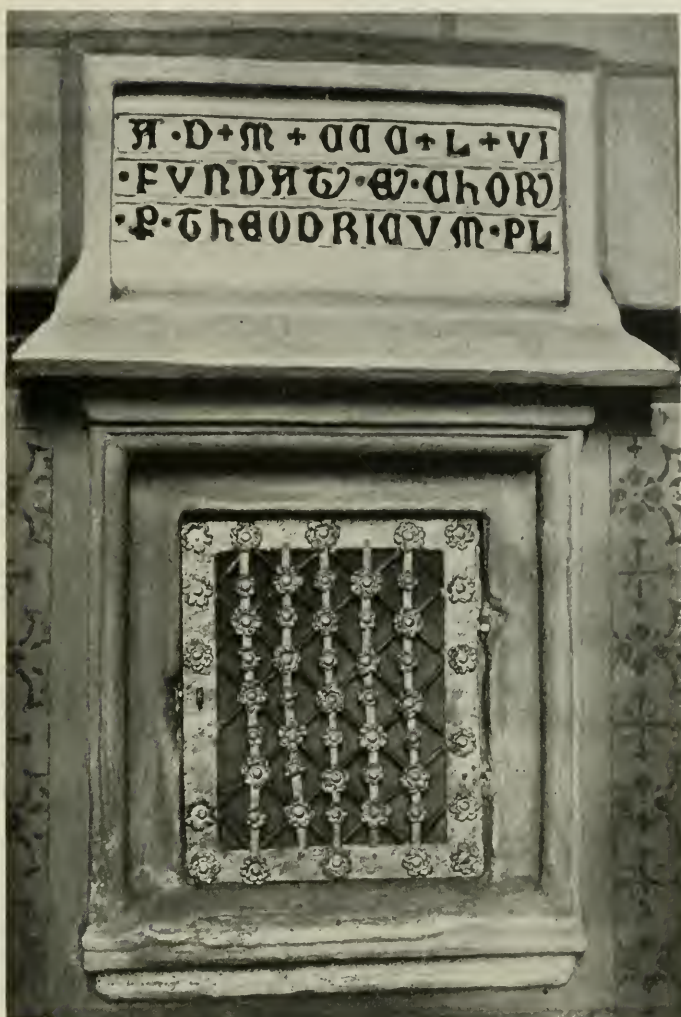 A·D+M+CCC+L+VI
·FVNDATꝰ·Eꝰ·ChORꝰ
·P·ThEODRICVM·PL